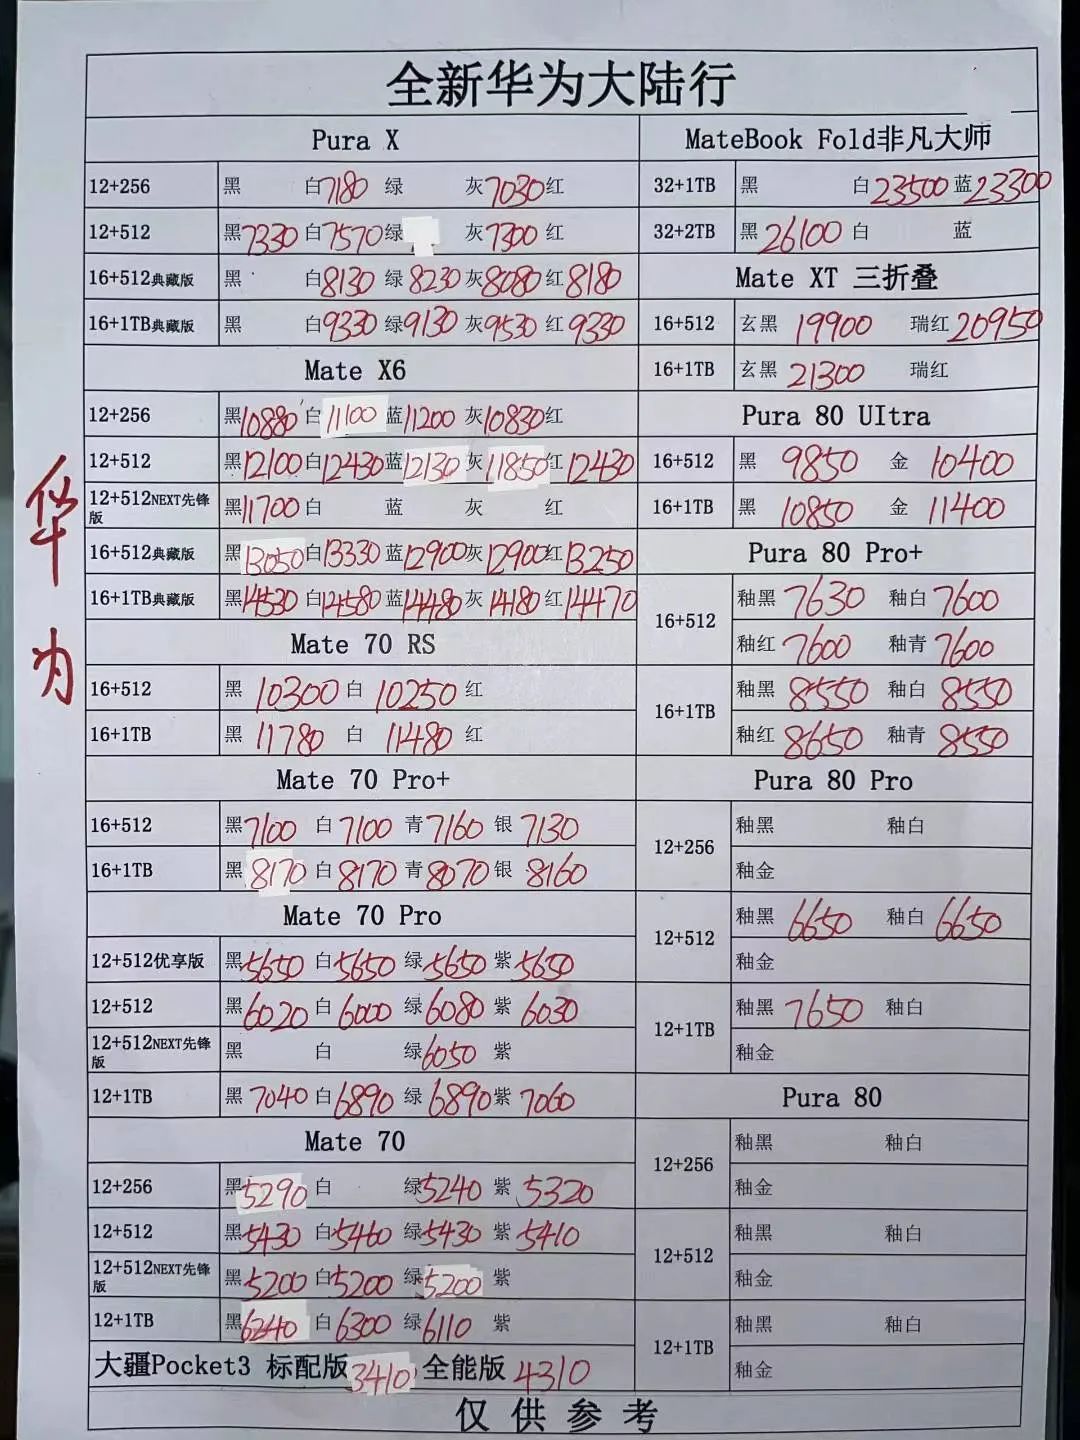 全新华为大陆行
Pura X
12+256 黑 白7180 绿 灰7030 红
12+512 黑7330 白7570 绿 灰7300 红
16+512典藏版 黑 白8130 绿8230 灰8080 红8180
16+1TB典藏版 黑 白9330 绿9130 灰9530 红9330
Mate X6
12+256 黑10880 白11100 蓝11200 灰10830 红
12+512 黑12100 白12430 蓝12130 灰11850 红12430
12+512NEXT先锋版 黑11700 白 蓝 灰 红
16+512典藏版 黑13050 白13330 蓝12900 灰12900 红13250
16+1TB典藏版 黑14530 白14580 蓝14480 灰14180 红14470
Mate 70 RS
16+512 黑10300 白10250 红
16+1TB 黑11780 白11480 红
Mate 70 Pro+
16+512 黑7100 白7100 青7160 银7130
16+1TB 黑8170 白8170 青8070 银8160
Mate 70 Pro
12+512优享版 黑5650 白5650 绿5650 紫5650
12+512 黑6020 白6000 绿6080 紫6030
12+512NEXT先锋版 黑 白 绿6050 紫
12+1TB 黑7040 白6890 绿6890 紫7060
Mate 70
12+256 黑5290 白 绿5240 紫5320
12+512 黑5430 白5460 绿5430 紫5410
12+512NEXT先锋版 黑5200 白5200 绿5200 紫
12+1TB 黑6240 白6300 绿6110 紫
大疆Pocket3 标配版3410 全能版4310
MateBook Fold非凡大师
32+1TB 黑 白23500 蓝23300
32+2TB 黑26100 白 蓝
Mate XT 三折叠
16+512 玄黑19900 瑞红20950
16+1TB 玄黑21300 瑞红
Pura 80 UItra
16+512 黑9850 金10400
16+1TB 黑10850 金11400
Pura 80 Pro+
16+512 釉黑7630 釉白7600
釉红7600 釉青7600
16+1TB 釉黑8550 釉白8550
釉红8650 釉青8550
Pura 80 Pro
12+256 釉黑 釉白
釉金
12+512 釉黑6650 釉白6650
釉金
12+1TB 釉黑7650 釉白
釉金
Pura 80
12+256 釉黑 釉白
釉金
12+512 釉黑 釉白
釉金
12+1TB 釉黑 釉白
釉金
仅供参考
华为